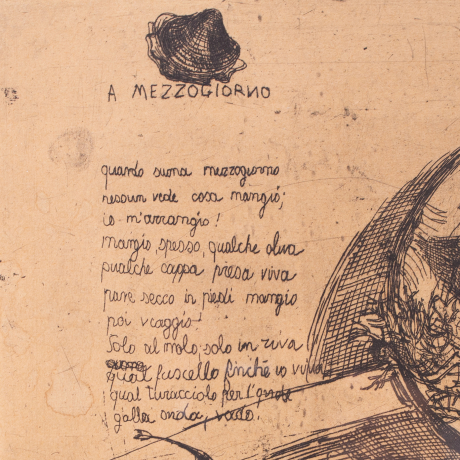 A MEZZOGIORNO
quando suona mezzogiorno
nessun vede cosa mangio;
io m'arrangio!
mangio, spesso, qualche oliva
qualche cappa presa viva
pane secco in piedi mangio
poi viaggio
Solo al molo, solo in riva
qual fuscello finché io viva
qual turacciolo per l'onde
galla onda, vado.